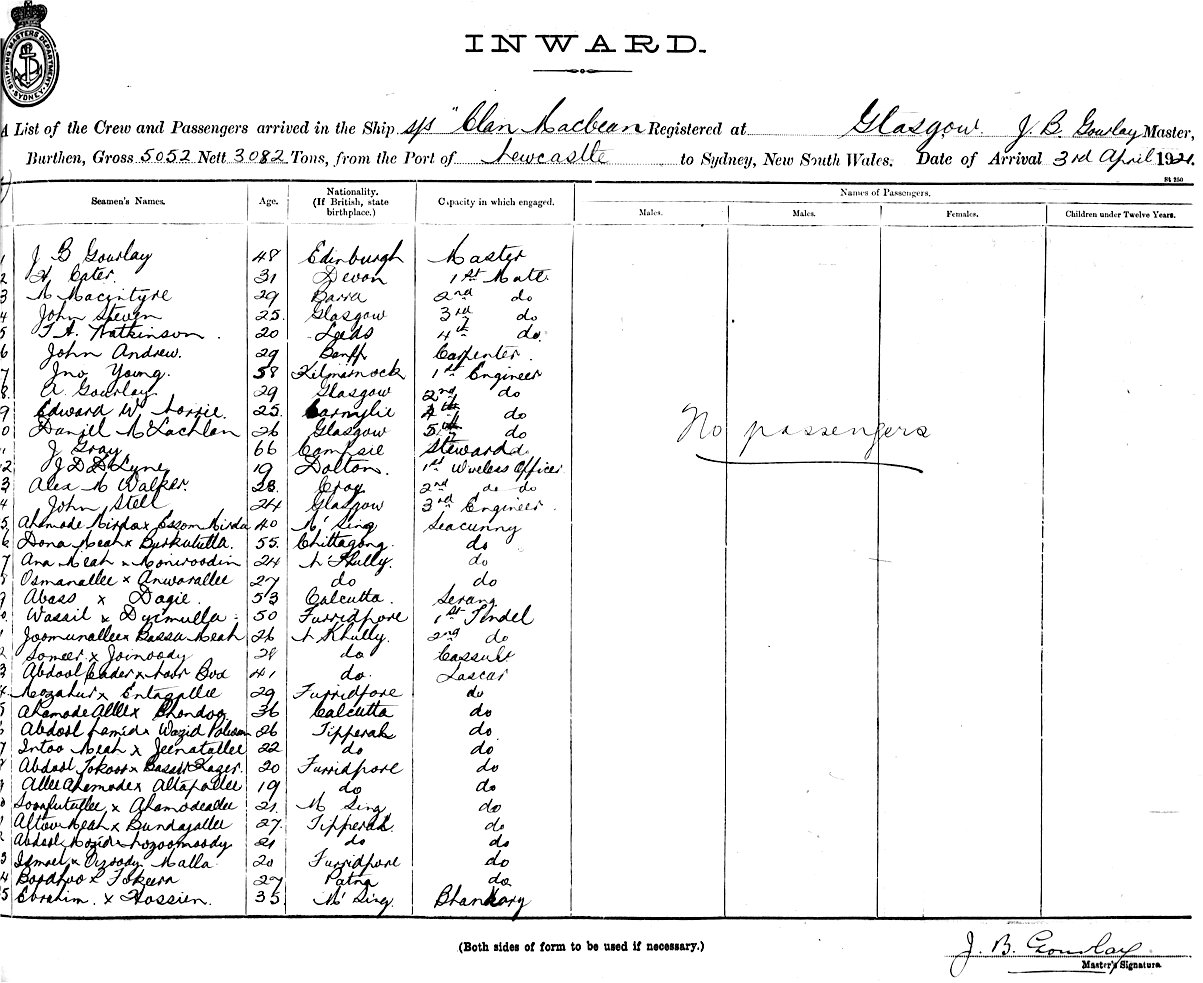 SHIPPING MASTERS DEPARTMENT SYDNEY
INWARD.
A List of the Crew and Passengers arrived in the Ship s/s "Clan Macbean Registered at Glasgow. J. B. Gourlay Master,
Burthen, Gross 5052 Nett 3082 Tons, from the Port of Newcastle to Sydney, New South Wales. Date of Arrival 3rd April 1921.
St 250
Seamen's Names. Age. Nationality. (If British, state birthplace.) Capacity in which engaged. Names of Passengers.
Males. Males. Females. Children under Twelve Years.
1 J B Gourlay 48 Edinburgh Master
2 H. Cater. 31 Devon 1st Mate
3 N Macintyre 29 Barra 2nd do
4 John Steven 25. Glasgow 3rd do
5 T. A. Watkinson. 20 Leeds 4th do.
6 John Andrew. 29 Banff Carpenter.
7 Jno Young. 58 Kilmarnock 1st Engineer
8 A. Gourlay 29 Glasgow 2nd do
9 Edward W. Lorrie. 25. Carmylie 4th do
0 Daniel McLachlan 26 Glasgow 5th do
J Gray 66 Campsie Steward
2 J D D Lyne 19 Dolton. 1st Wireless Officer
3 Alex M Walker. 28. Croy 2nd do do
4 John Stell 24 Glasgow 3rd Engineer.
No passengers
5 Ahamode Mirda x Essom Mirda 40 M' Sing Seacunny
6 Dona Meah x Burkutulla. 55. Chittagong. do
7 Ana Meah x Moniroodin 24 N' Khully. do
Osmanallee x Anwarallee 27 do do
9 Abass x Dagie. 53 Calcutta. Serang
0 Wassil x Dyimulla. 50 Furridpore 1st Tindel
1 Joomunallee x Bassa Meah 26 N Khully. 2nd do
2 Someer x Joinoody 28 do Cassab
3 Abdool Cader x Noor Bux 41 do. Lascar
4 Mozahur x Entazallee 29 Furridpore do
5 Ahamode Allee x Bhondoo 36 Calcutta do
6 Abdool Hamid x Wazid 26 Tipperah do
7 Intoo Meah x Jeenatallee 22 do do
8 Abdool x 20 Furridpore do
9 Allee Ahamode x Altapallee 19 do do
0 x Ahamodeallee 21. M Sing do
1 Meah x 27. Tipperah. do
2 Abdool 21 do do
3 Ismail x Malla 20 Furridpore do
4 x Fokeera 27 Patna do
5 Ebrahim. x Hossien. 35 M' Sing. Bhandary
(Both sides of form to be used if necessary.)
J. B. Gourlay
Master's Signature